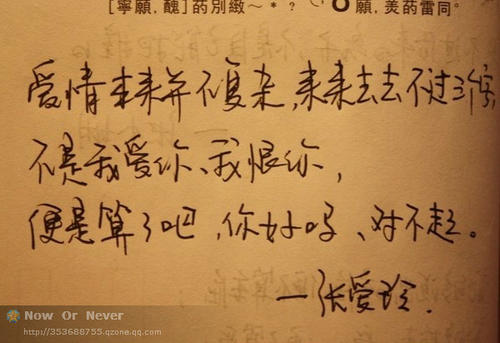 [寧願，醜]药別緻～*？
願，羨药雷同。
爱情本来并不复杂，来来去去不过三个字，
不是我爱你、我恨你，
便是算了吧，你好吗、对不起。
—张爱玲.
Now Or Never
http://353688755.qzone.qq.com